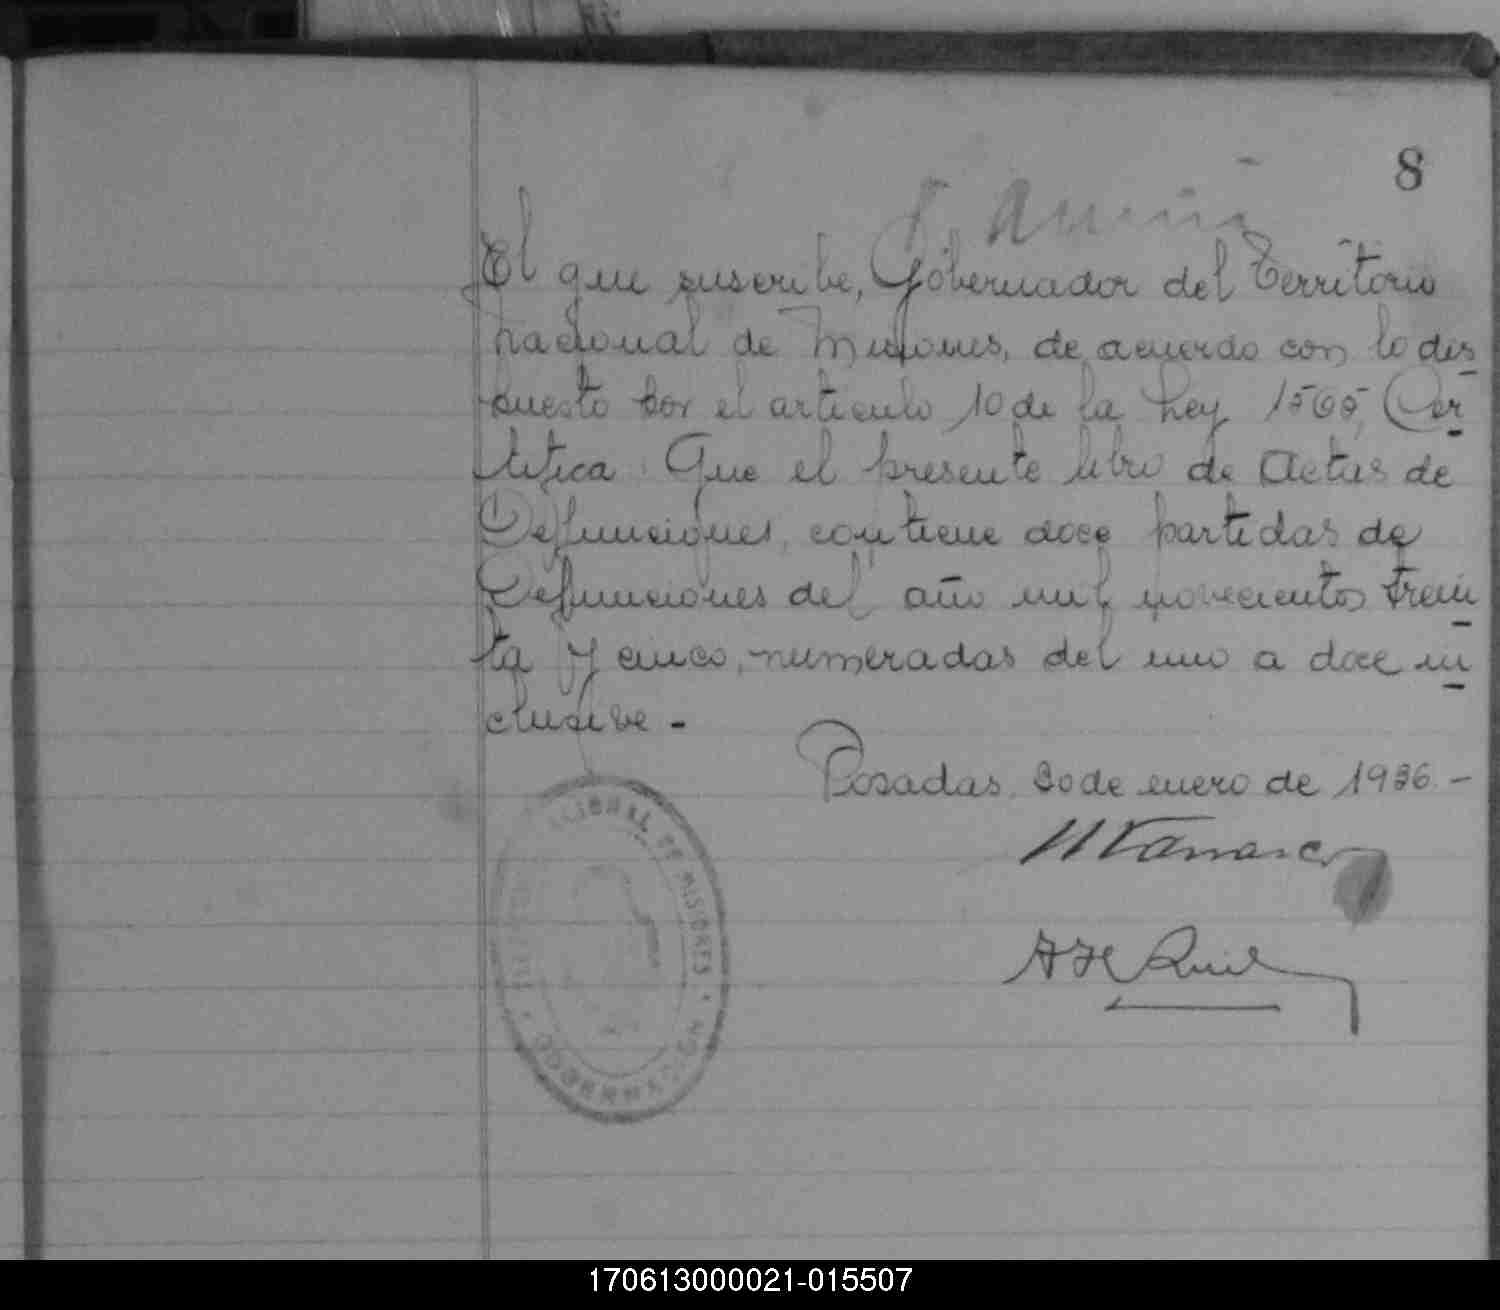 8
El que suscribe, Gobernador del Territorio
nacional de Misiones, de acuerdo con lo dis
puesto por el artículo 10 de la Ley 1565, Cer
tifica: Que el presente libro de Actas de
Defunciones, contiene doce partidas de
Defunciones del año mil novecientos trein
ta y cinco, numeradas del uno a doce in
clusive.-
Posadas, 20 de enero de 1936.-
NACIONAL DE MISIONES • GOBERNACION
170613000021-015507